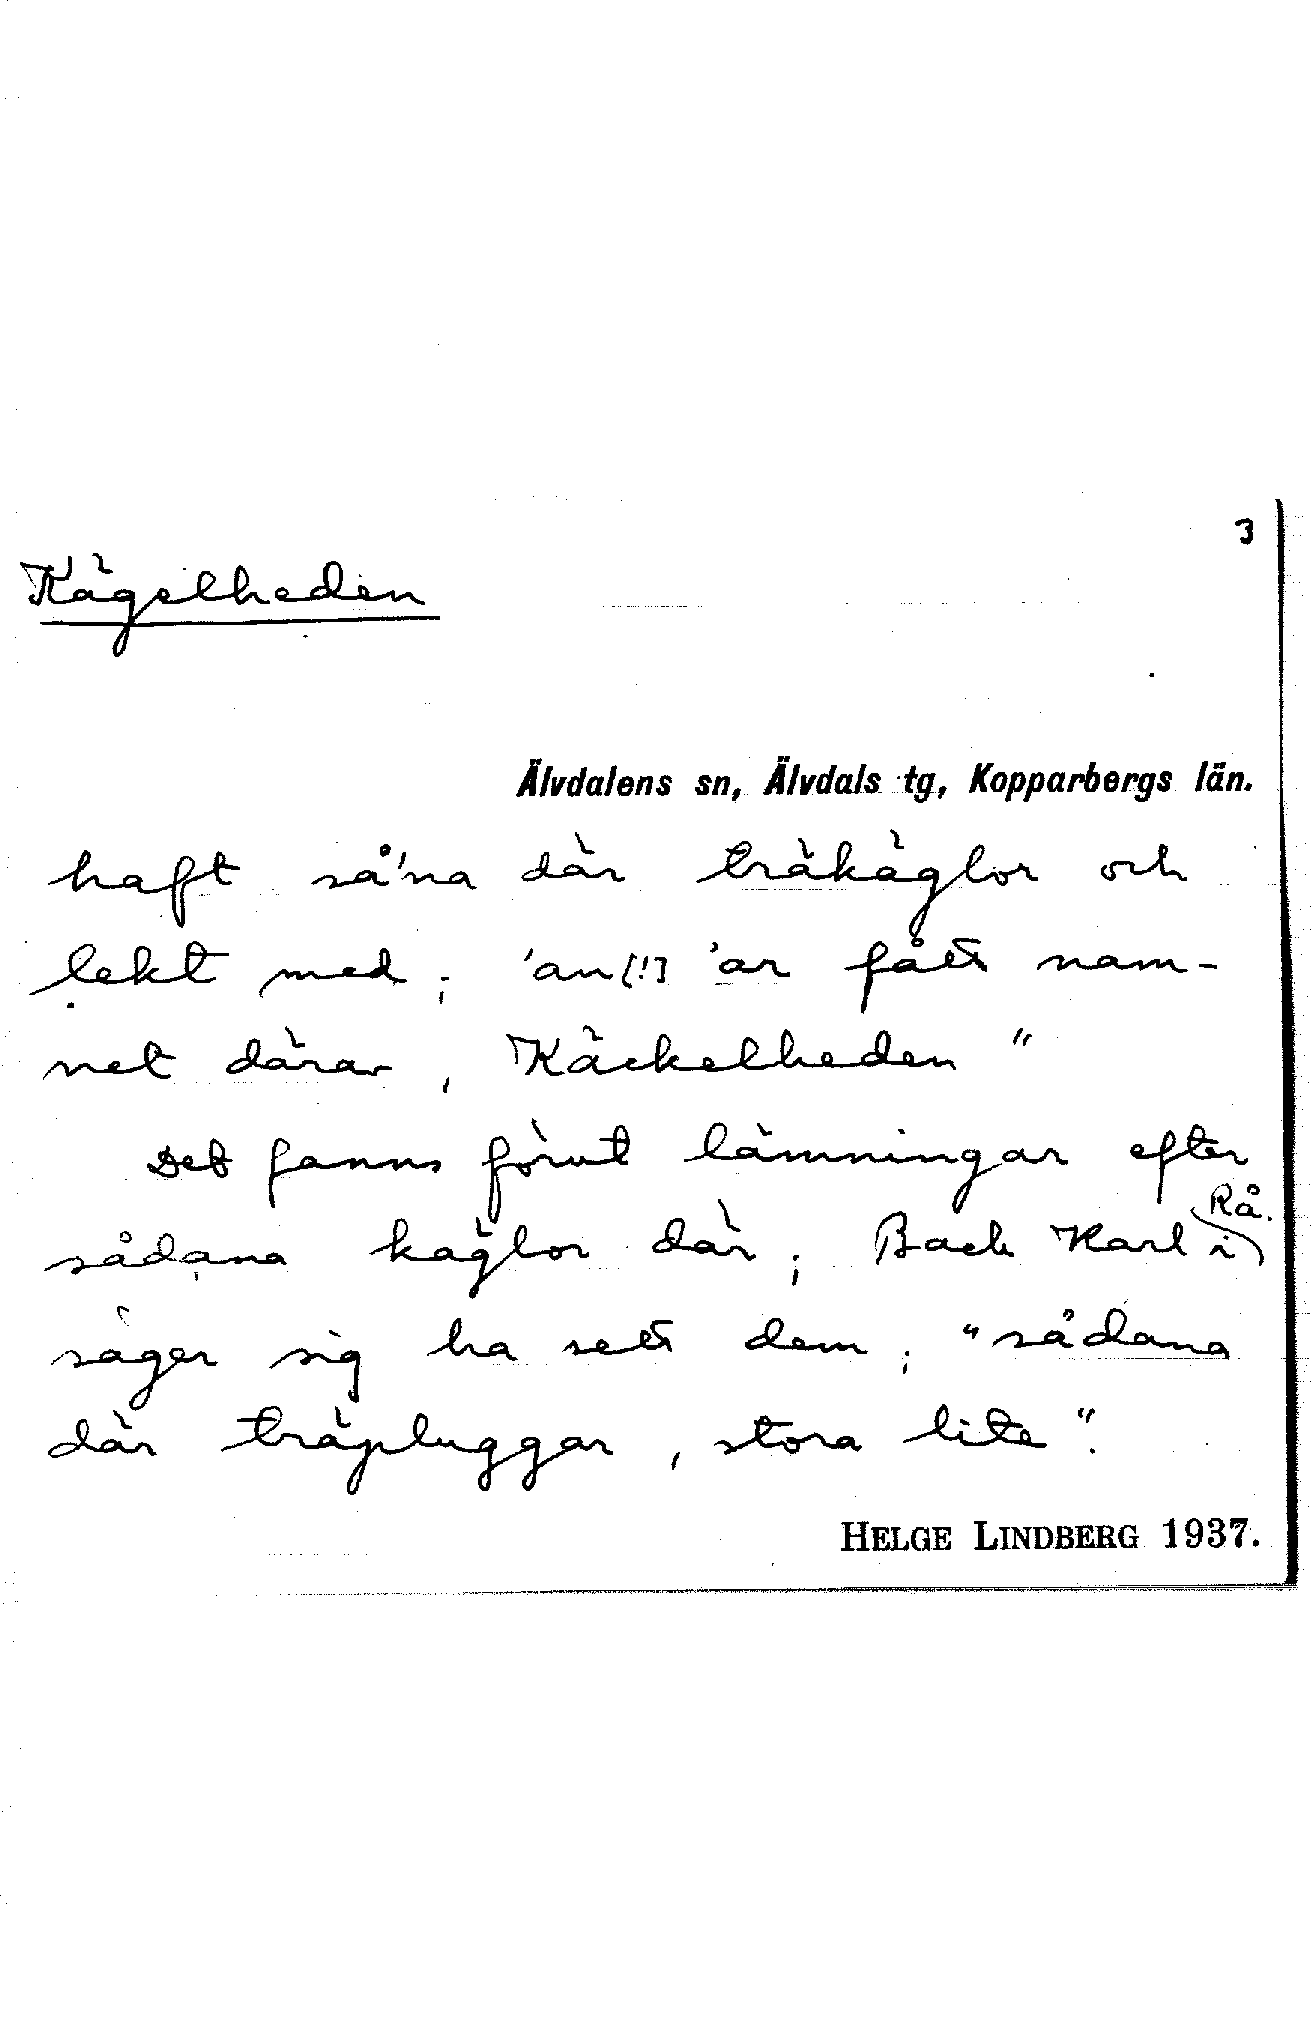 3
Kägelheden
Älvdalens sn, Älvdals tg, Kopparbergs län.
haft så'na där träkäglor och
lekt med; 'an[!] 'ar fått nam-
net därav, Käckelheden"
Det fanns förut lämningar efter
sådana käglor där; Back Karl i Rå.
säger sig ha sett dem; "sådana
där träpluggar, stora lite".
HELGE LINDBERG 1937.